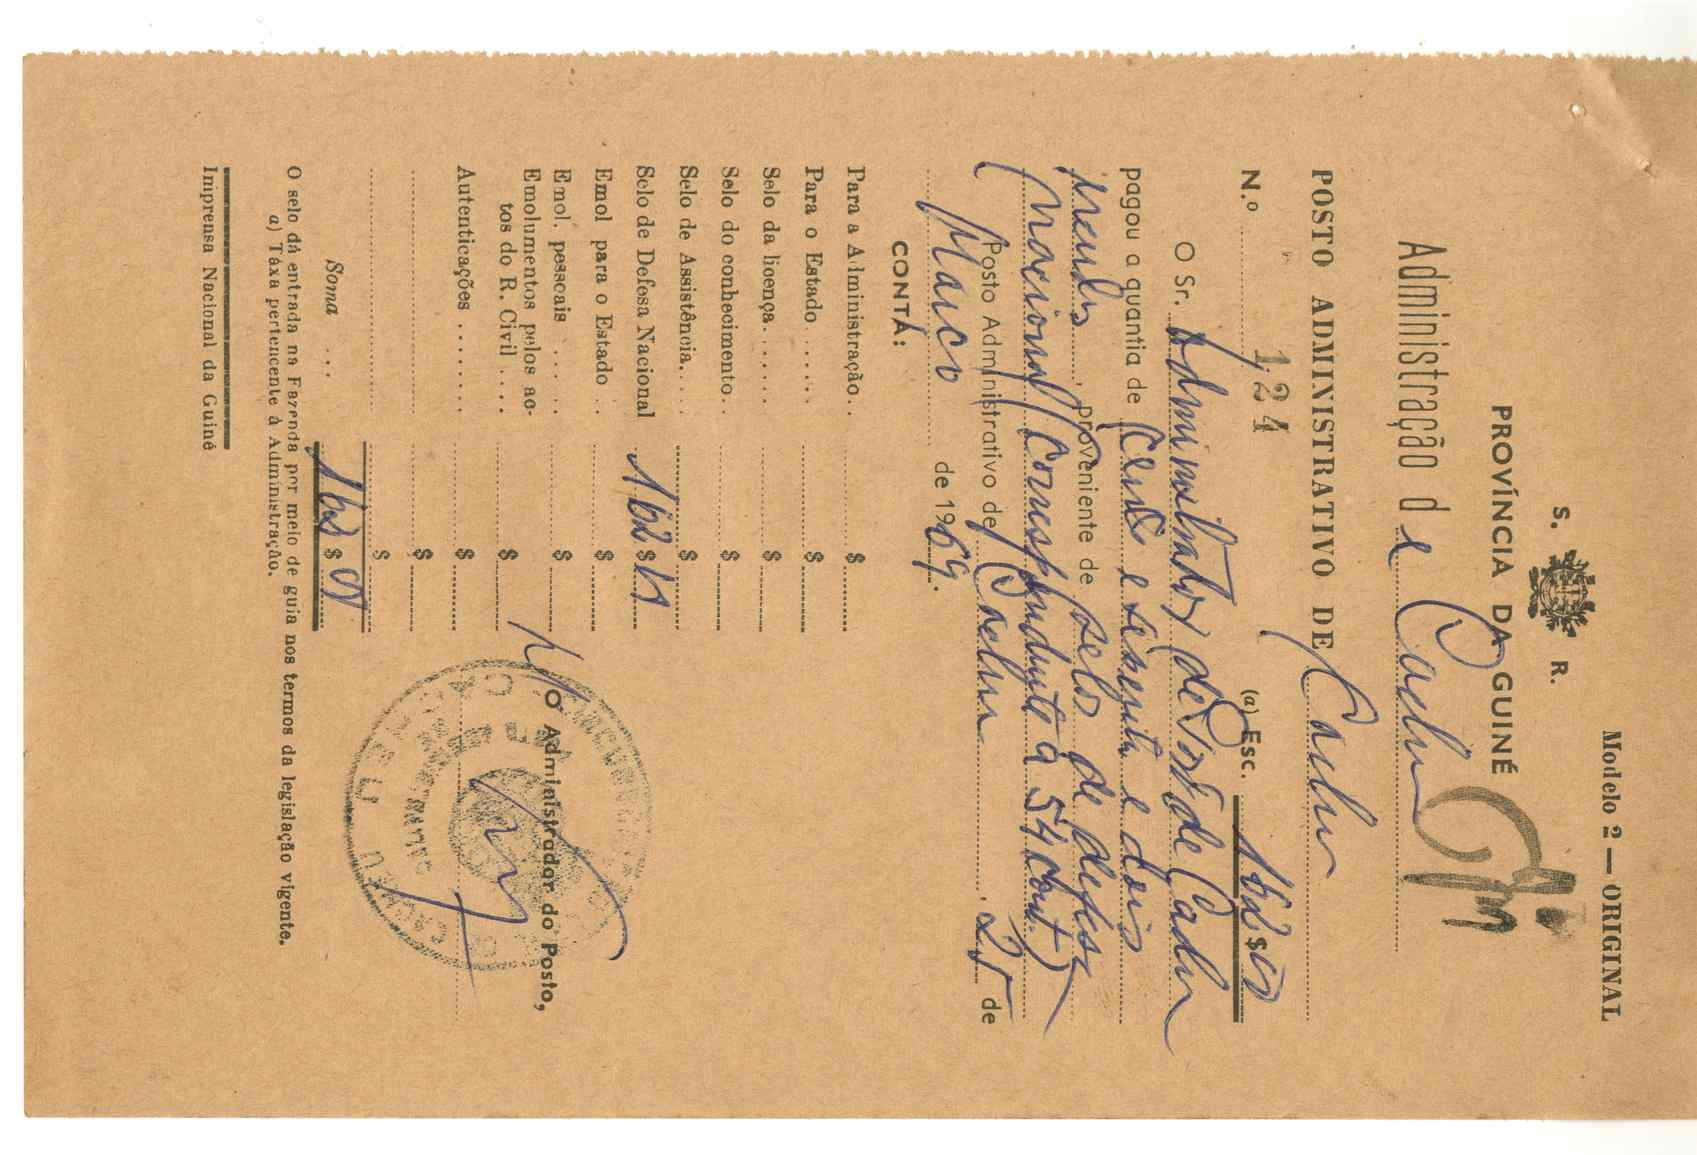 Modelo 2 — ORIGINAL
S. R.
PROVÍNCIA DA GUINÉ
Administração de Cacheu
POSTO ADMINISTRATIVO DE Cacheu
N.º 124 (a) Esc. 162$00
O Sr. Administrador de Posto de Cacheu
pagou a quantia de cento e sessenta e dois
pesos, proveniente de selo de defesa
nacional (correspondente a 54 cont.)
Posto Administrativo de Cacheu, 25 de
Março de 1969.
CONTA:
Para a Administração.. $
Para o Estado..... $
Selo da licença...... $
Selo do conhecimento.. $
Selo de Assistência... $
Selo de Defesa Nacional 162$
Emol para o Estado.. $
Emol. pessoais.... $
Emolumentos pelos ac-
tos do R. Civil.... $
Autenticações...... $
$
$
Soma... 162$00
O Administrador do Posto,
O selo dá entrada na Fazenda por meio de guia nos termos da legislação vigente.
a) Táxa pertencente à Administração.
Imprensa Nacional da Guiné